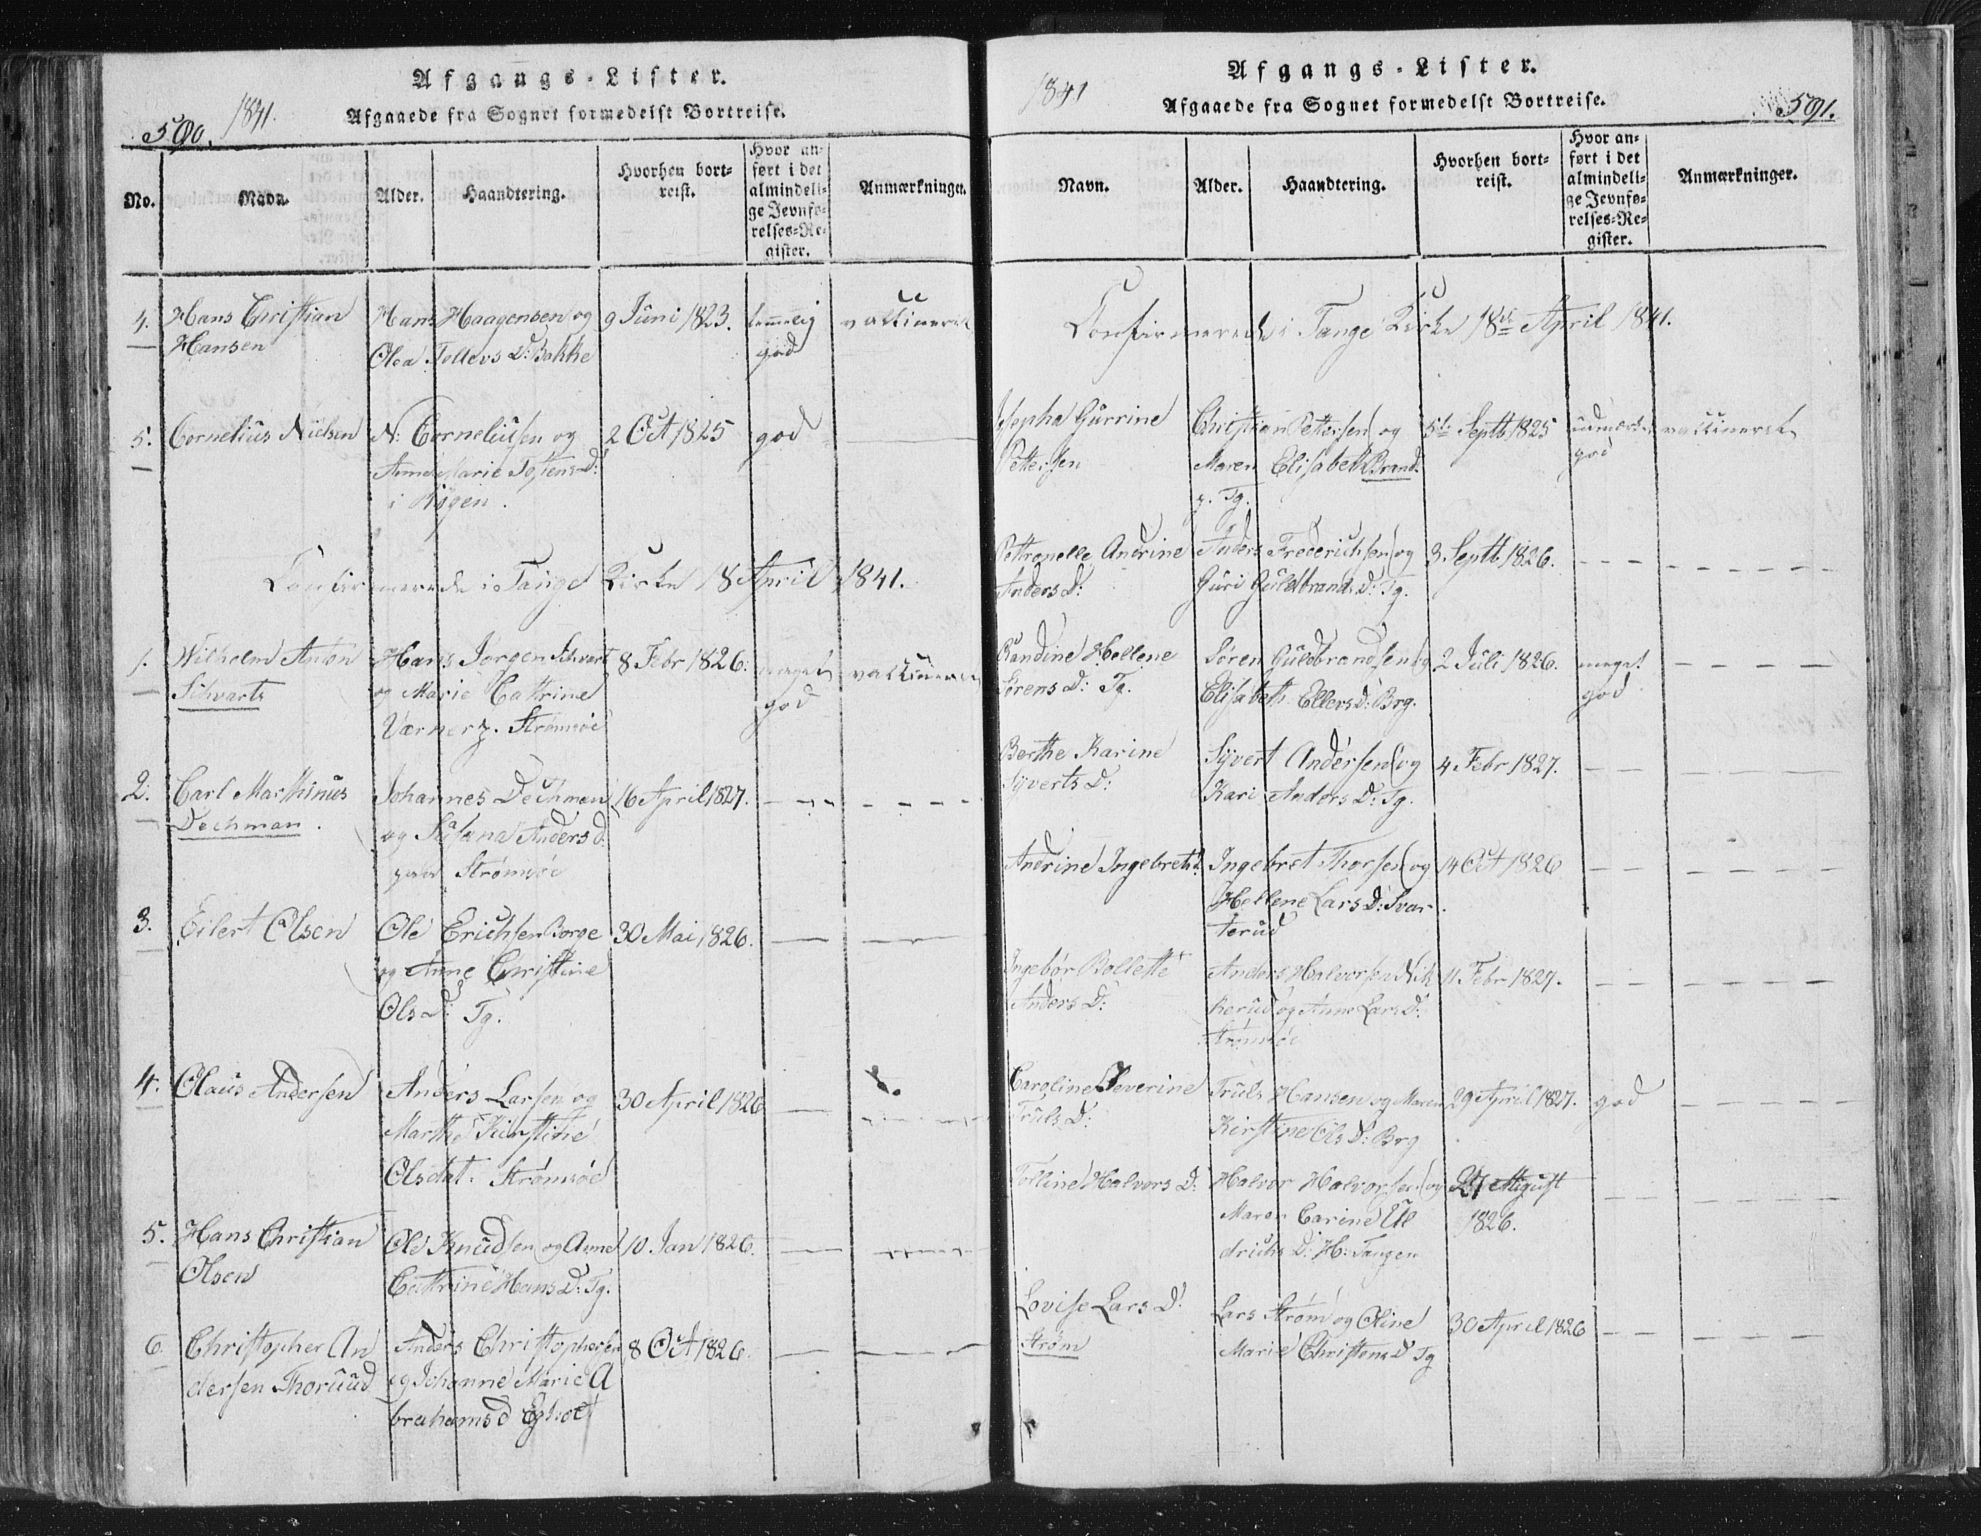 Afgangs-Lister.
590. 1841. Afgaaede fra Sognet formedelst Bortreise.
No. Navn. Alder. Haandtering. Hvorhen bort-
reist. Hvor an-
ført i det
almindeli-
ge Jevnfø-
relses-Re-
gister. Anmærkninger.
4. Hans Christian Hans Haagensen og 9 Juni 1823. temmelig vaksineret
Hansen Olea Tollevs D: Bakke god
5. Cornelius Nielsen N: Corneliusen og 2 Oct 1825 god
Anne Marie Tostens D:
i Rygen.
Confirmerede i Tange Kirke 18 April 1841.
1. Wilhelm Anton Hans Jørgen Schvarts 8 Febr 1826. meget vaksineret
Schvarts og Marie Catrine god
Værner p. Strømsøe
2. Carl Marthinus Johannes Dechman 16 April 1827.
Dechman. og Susana Anders d:
paa Strømsøe
3. Eilert Olsen Ole Erichsen Borge 30 Mai 1826.
og Anne Christine
Ols D: Tg.
4. Olaus Andersen Anders Larsen og 30 April 1826
Marthe Kirstine
Olsdat. Strømsøe
5. Hans Christian Ole Knudsen og Anne 10. Jan 1826.
Olsen Cathrine Hans D: Tg.
6. Christopher An Anders Christophersen 8 Oct 1826.
dersen Thoruud og Johanne Marie A
brahams d
Afgangs-Lister.
1841 Afgaaede fra Sognet formedelst Bortreise. 591.
Navn. Alder. Haandtering. Hvorhen bort-
reist. Hvor an-
ført i det
almindeli-
ge Jevnfø-
relses-Re-
gister. Anmærkninger.
Confirmerede i Tange Kirke 18de April 1841.
Josepha Gurrine Christian Pettersen og 5te Septb 1825 udmærket vaksineret
Pettersen Maren Elisabeth Brand. god
p. Tg.
Pettronelle Andrine Anders Frederichsen og 3. Septb 1826.
Anders D: Guri Guldbrands D: Tg.
Randine Hellene Søren Guldbrandsen og 2 Juli 1826. meget
Sørens D: Tg. Elisabeth Ellers D: Brg. god
Berthe Karine Syvert Andersen og 4 Febr 1827.
Syverts D: Kari Anders D: Tg.
Andrine Ingebrets d. Ingebret Thorsen og 14 Oct 1826
Hellene Lars D: Svar
terud
Ingebor Bollette Anders Halvorsen Nik 11 Febr 1827.
Anders D: kerud og Anne Lars D:
Strømsøe
Caroline Severine Truls Hansen og Maren 29 April 1827. god
Truls D: Kirstine Ols D: Brg
Tolline Halvors D: Halvor Halvorsen og 27 August
Maren Carine Ul 1826.
drichs D: H: Tangen
Lovise Lars D: Lars Strøm og Oline 30 April 1826
Strøm Marie Christens D Tg